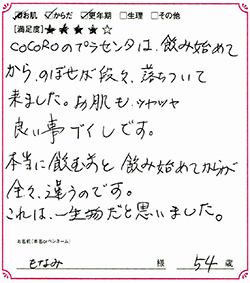 ☑お肌 ☑からだ ☑更年期 □生理 □その他
[満足度]★★★★☆
COCOROのプラセンタは、飲み始めて
から、のぼせが段々、落ちついて
来ました。お肌も、ツヤツヤ
良い事ヅイしです。
本当に飲む前と飲み始めてからが
全々、違うのです。
これは、一生物だと思いました。
お名前(本名orペンネーム)
もなみ 様 54歳